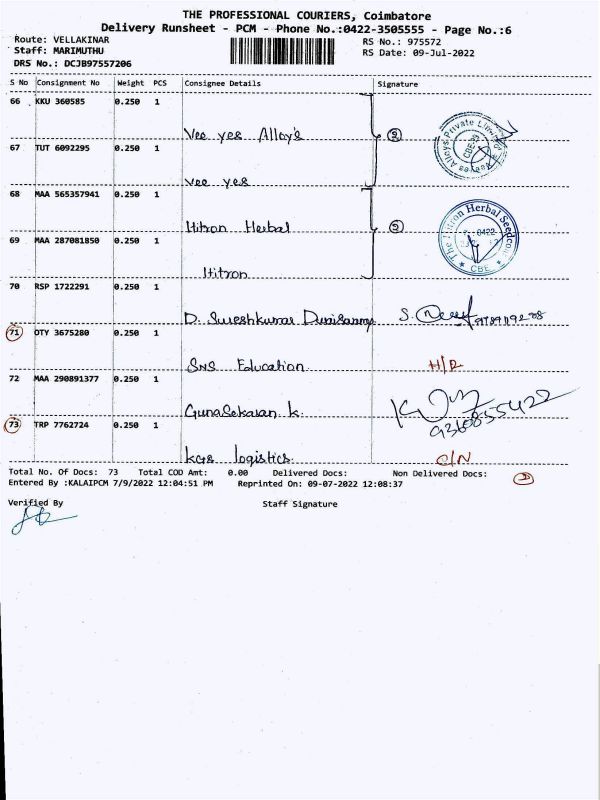 THE PROFESSIONAL COURIERS, Coimbatore
Delivery Runsheet - PCM - Phone No.:0422-3505555 - Page No.:6
Route: VELLAKINAR RS No.: 975572
Staff: MARIMUTHU RS Date: 09-Jul-2022
DRS No.: DCJB97557206
S No Consignment No Weight PCS Consignee Details Signature
66 KKU 360585 0.250 1
Vee yes Alloys 2
67 TUT 6092295 0.250 1
vee yes
68 MAA 565357941 0.250 1
Hitron Herbal 2
69 MAA 287081850 0.250 1
Hitron
70 RSP 1722291 0.250 1
D. Sureshkumar Duraisamy S.
71 OTY 3675280 0.250 1
SNS Education H/R
72 MAA 290891377 0.250 1
Gunasekaran k. 9360855422
73 TRP 7762724 0.250 1
KGS logistics C/N
Total No. Of Docs: 73 Total COD Amt: 0.00 Delivered Docs: Non Delivered Docs: 2
Entered By :KALAIPCM 7/9/2022 12:04:51 PM Reprinted On: 09-07-2022 12:08:37
Verified By Staff Signature